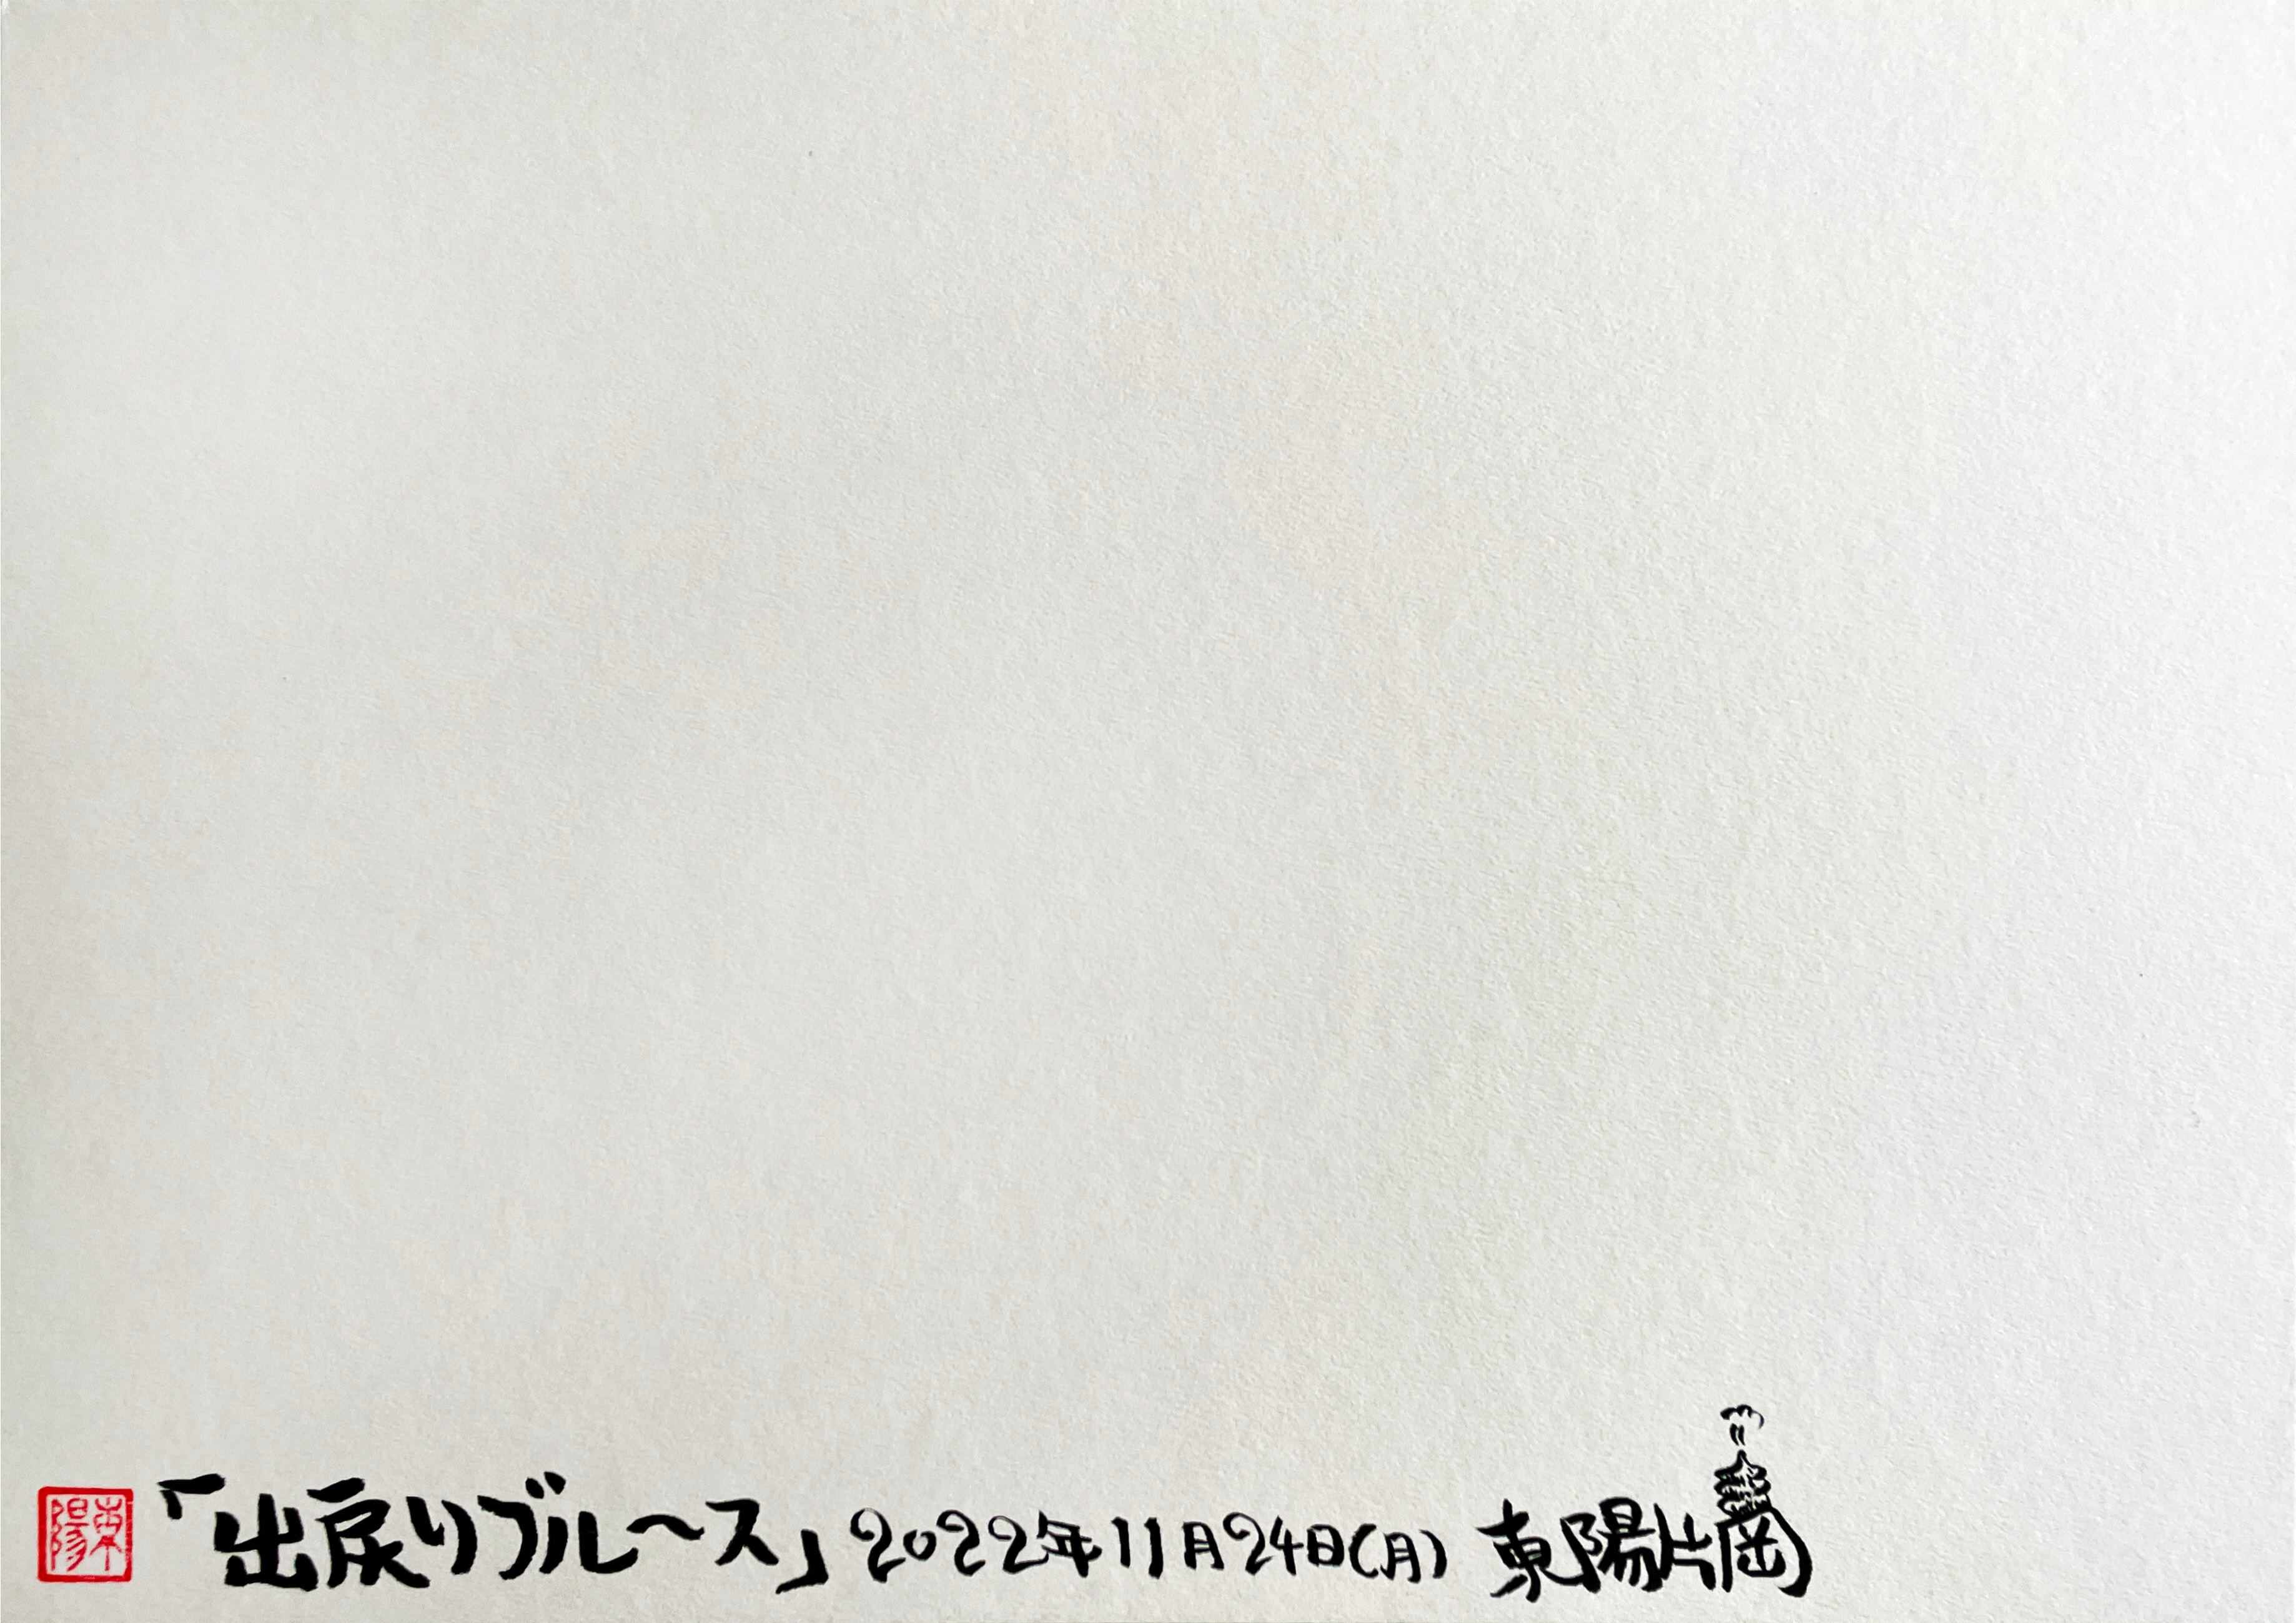 東陽
「出戻りブルース」2022年11月24日(月) 東陽片岡